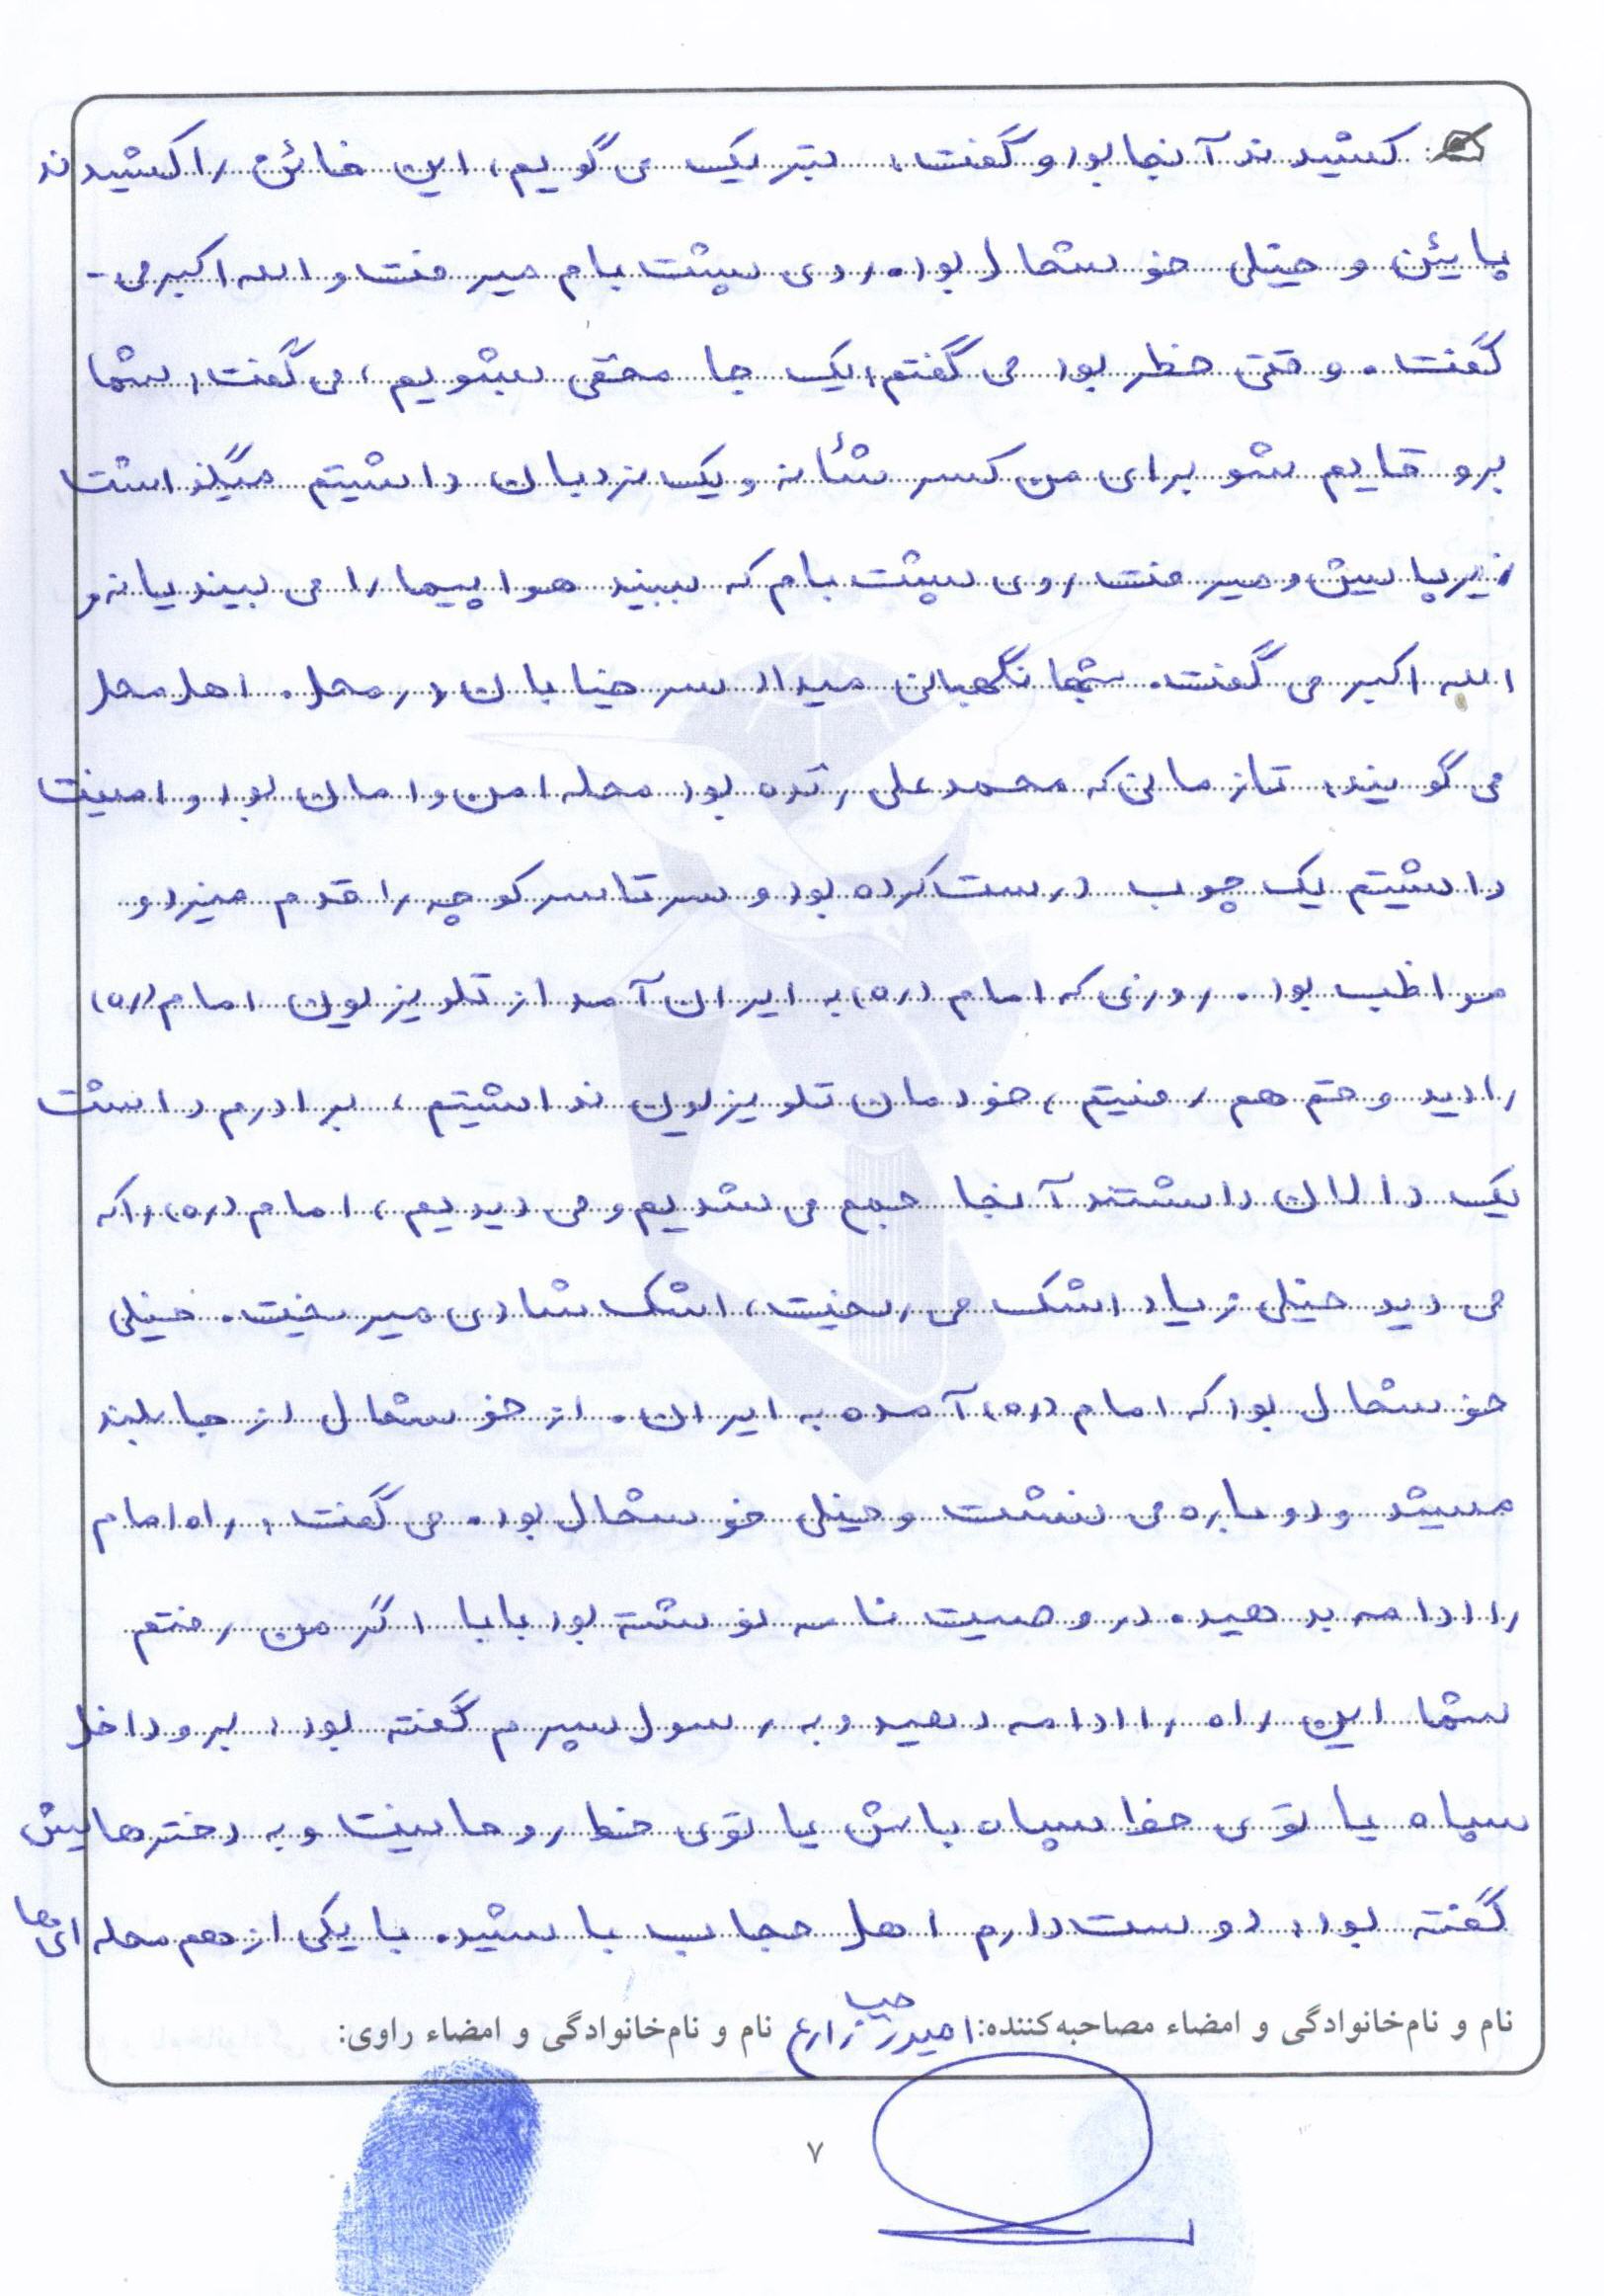 کشیدند آنجا بود و گفت، تبریک می گویم، این خائن را کشیدند
پایئن و خیلی خوشحال بود. روی پشت بام میرفت و الله اکبر می-
گفت. وقتی خطر بود می گفتم، یک جا مخفی بشویم، می گفت، شما
برو قایم شو برای من کسر شأنه و یک نردبان داشتیم میگذاشت
زیر پاییش و میرفت روی پشت بام که ببیند هواپیما را می بیند یا نه و
الله اکبر می گفت. شبها نگهبانی میداد سر خیابان در محل. اهل محل
می گویند، تا زمانی که محمد علی زنده بود محله امن و امان بود و امنیت
داشتیم یک چوب درست کرده بود و سرتاسر کوچه را قدم میزد و
مواظب بود. روزی که امام (ره) به ایران آمد از تلویزیون امام (ره)
را دید و قم هم رفتیم، خودمان تلویزیون نداشتیم، برادرم داشت
یک دالان داشتند آنجا جمع می شدیم و می دیدیم، امام (ره) را که
می دید خیلی زیاد اشک می ریخت، اشک شادی میریخت. خیلی
خوشحال بود که امام (ره) آمده به ایران. از خوشحالی از جا بلند
میشد و دوباره می نشست و خیلی خوشحال بود. می گفت، راه امام
را ادامه بدهید. در وصیت نامه نوشته بود بابا اگر من رفتم
شما این راه را ادامه دهید و به رسول پسرم گفته بود، برو داخل
سپاه یا توی خط سپاه باش یا توی خط روحانیت و به دخترهایش
گفته بود، دوست دارم اهل حجاب باشید. با یکی از هم محله ای ها
نام و نام‌خانوادگی و امضاء مصاحبه‌کننده: زارع نام و نام‌خانوادگی و امضاء راوی:
۷